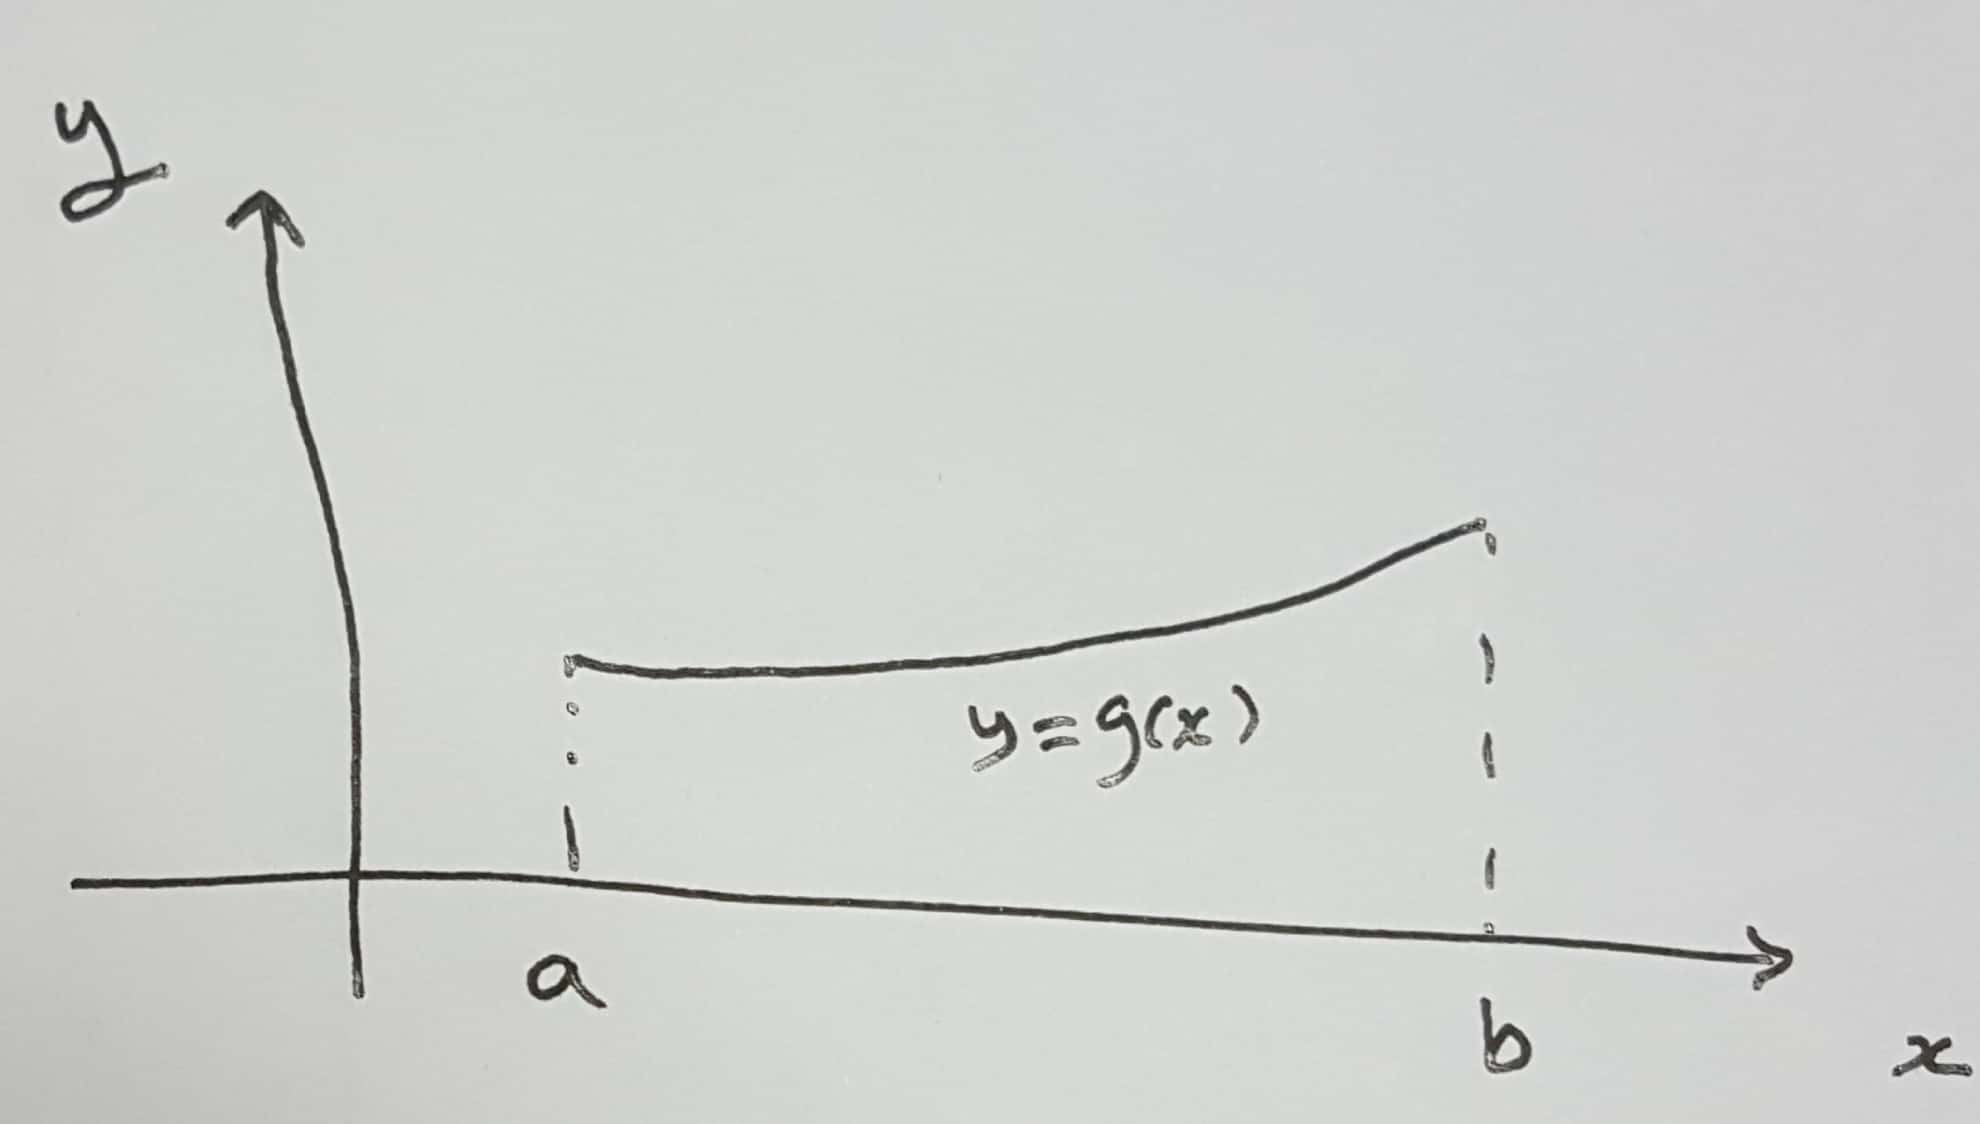 y
y = g(x)
a
b
x